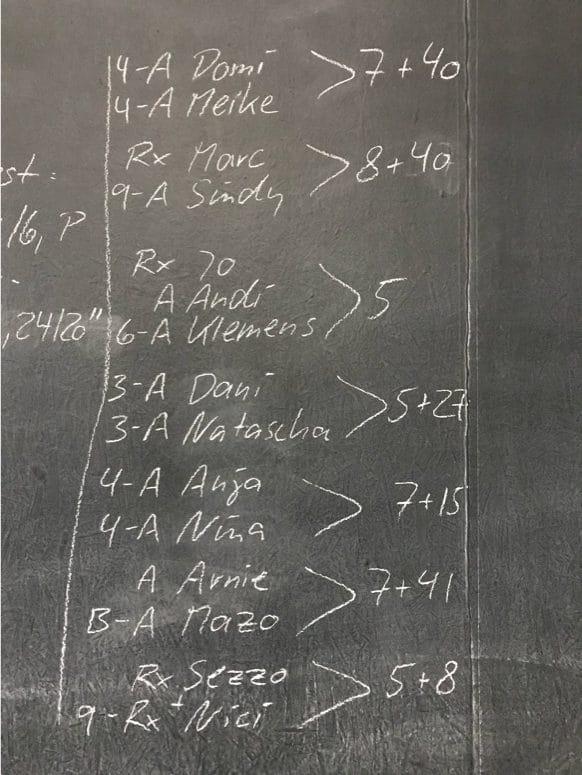 st:
16, P
,24/20"
4-A Domi > 7+40
4-A Meike
Rx Marc > 8+40
9-A Sindy
Rx Jo
A Andi > 5
6-A Klemens
3-A Dani > 5+27
3-A Natascha
4-A Anja > 7+15
4-A Nina
A Arnie > 7+41
B-A Mazo
Rx Sezzo > 5+8
9-Rx+ Nici